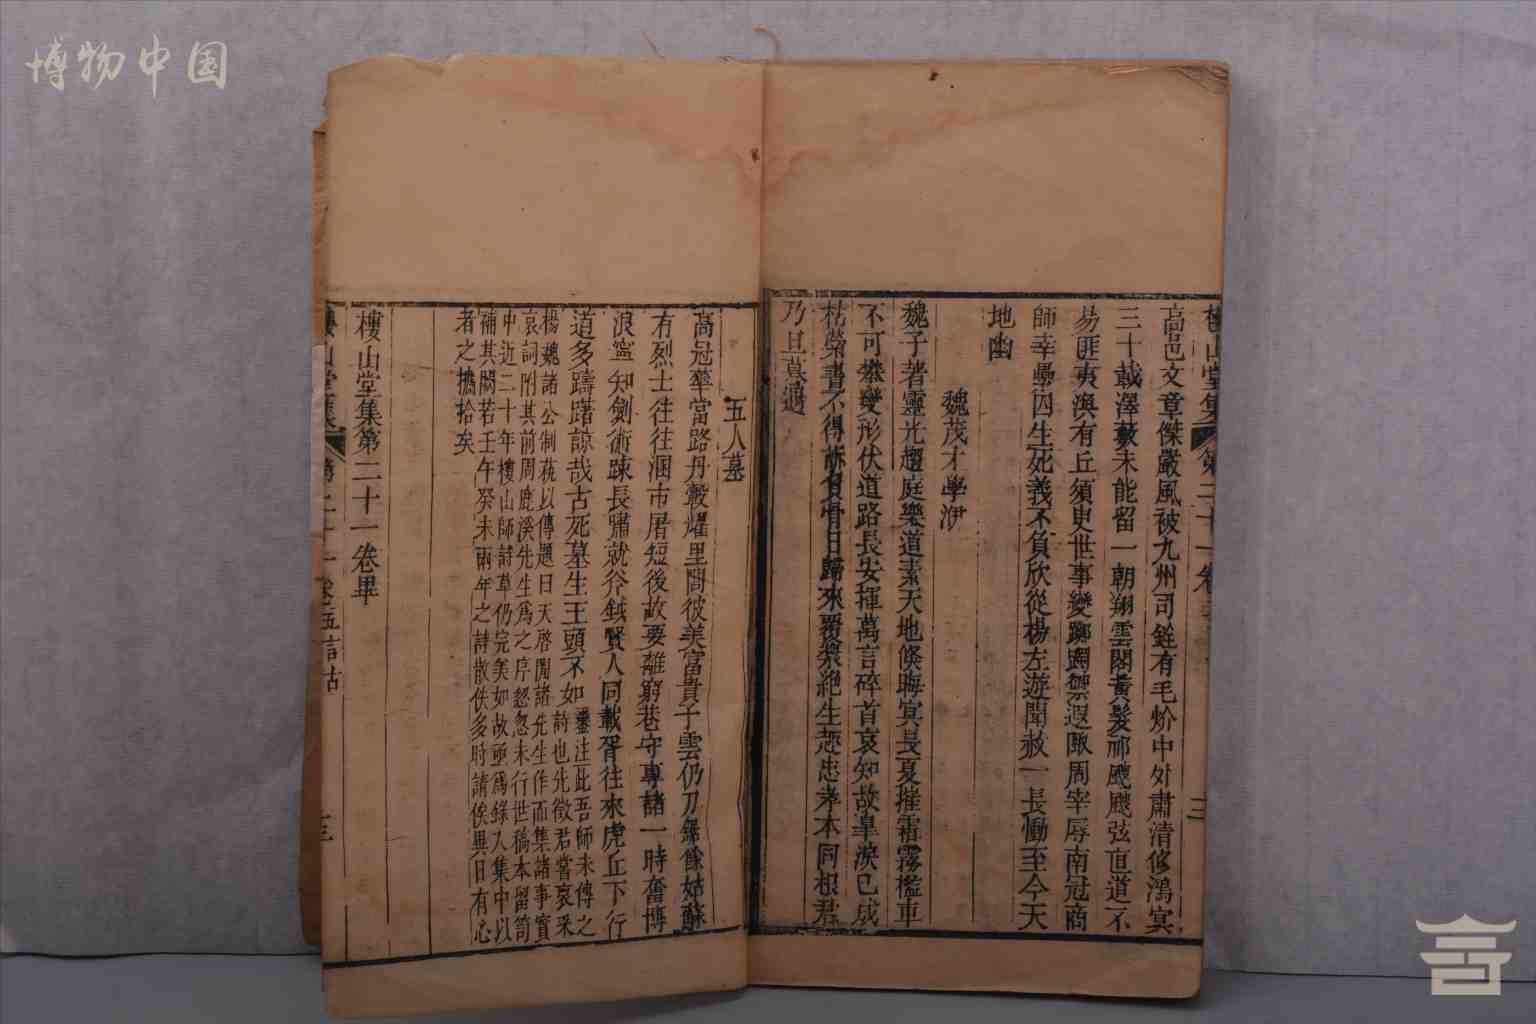 博物中国
高邑文章傑嚴風被九州司銓有毛玠中外肅清修鴻冥
三十載澤藪未能留一朝翔雲閣黃髮祁颼颼弦直道不
易匪夷與有丘須臾世事變躑躅禦遐陬周宰辱南冠商
師幸纍囚生死義不負欣從楊左遊聞赦一長慟至今天
地幽
魏茂才學洢
魏子者靈光趨庭樂道素天地倏晦冥長夏摧霜霧檻車
不可攀變形伏道路長安揮萬言碎首哀知故皋淚已成
枯榮書不得訴負骨日歸來覆槳絕生趣忠孝本同根君
乃旦莫遇
五人墓
高冠華當路丹轂燿里閭彼美富貴子雲仍刀鋸餘姑蘇
有烈士往往溷市屠短後故要離窮巷守專諸一時奮博
浪寧知劍術疎長嘯就斧鉞賢人同載胥往來虎丘下行
道多躊躇諒哉古死墓生王頭不如
鑾注此吾師未傳之
詩也先徵君嘗裒采
楊魏諸公制萟以傳題曰天啓閒諸先生作而集諸事實
哀詞附其前周鹿溪先生爲之序怱怱未行世稿本留笥
中近二十年樓山師詩草仍完美如故亟爲錄入集中以
補其闕若壬午癸未兩年之詩散佚多時請俟異日有心
者之摭拾矣
樓山堂集第二十一卷畢